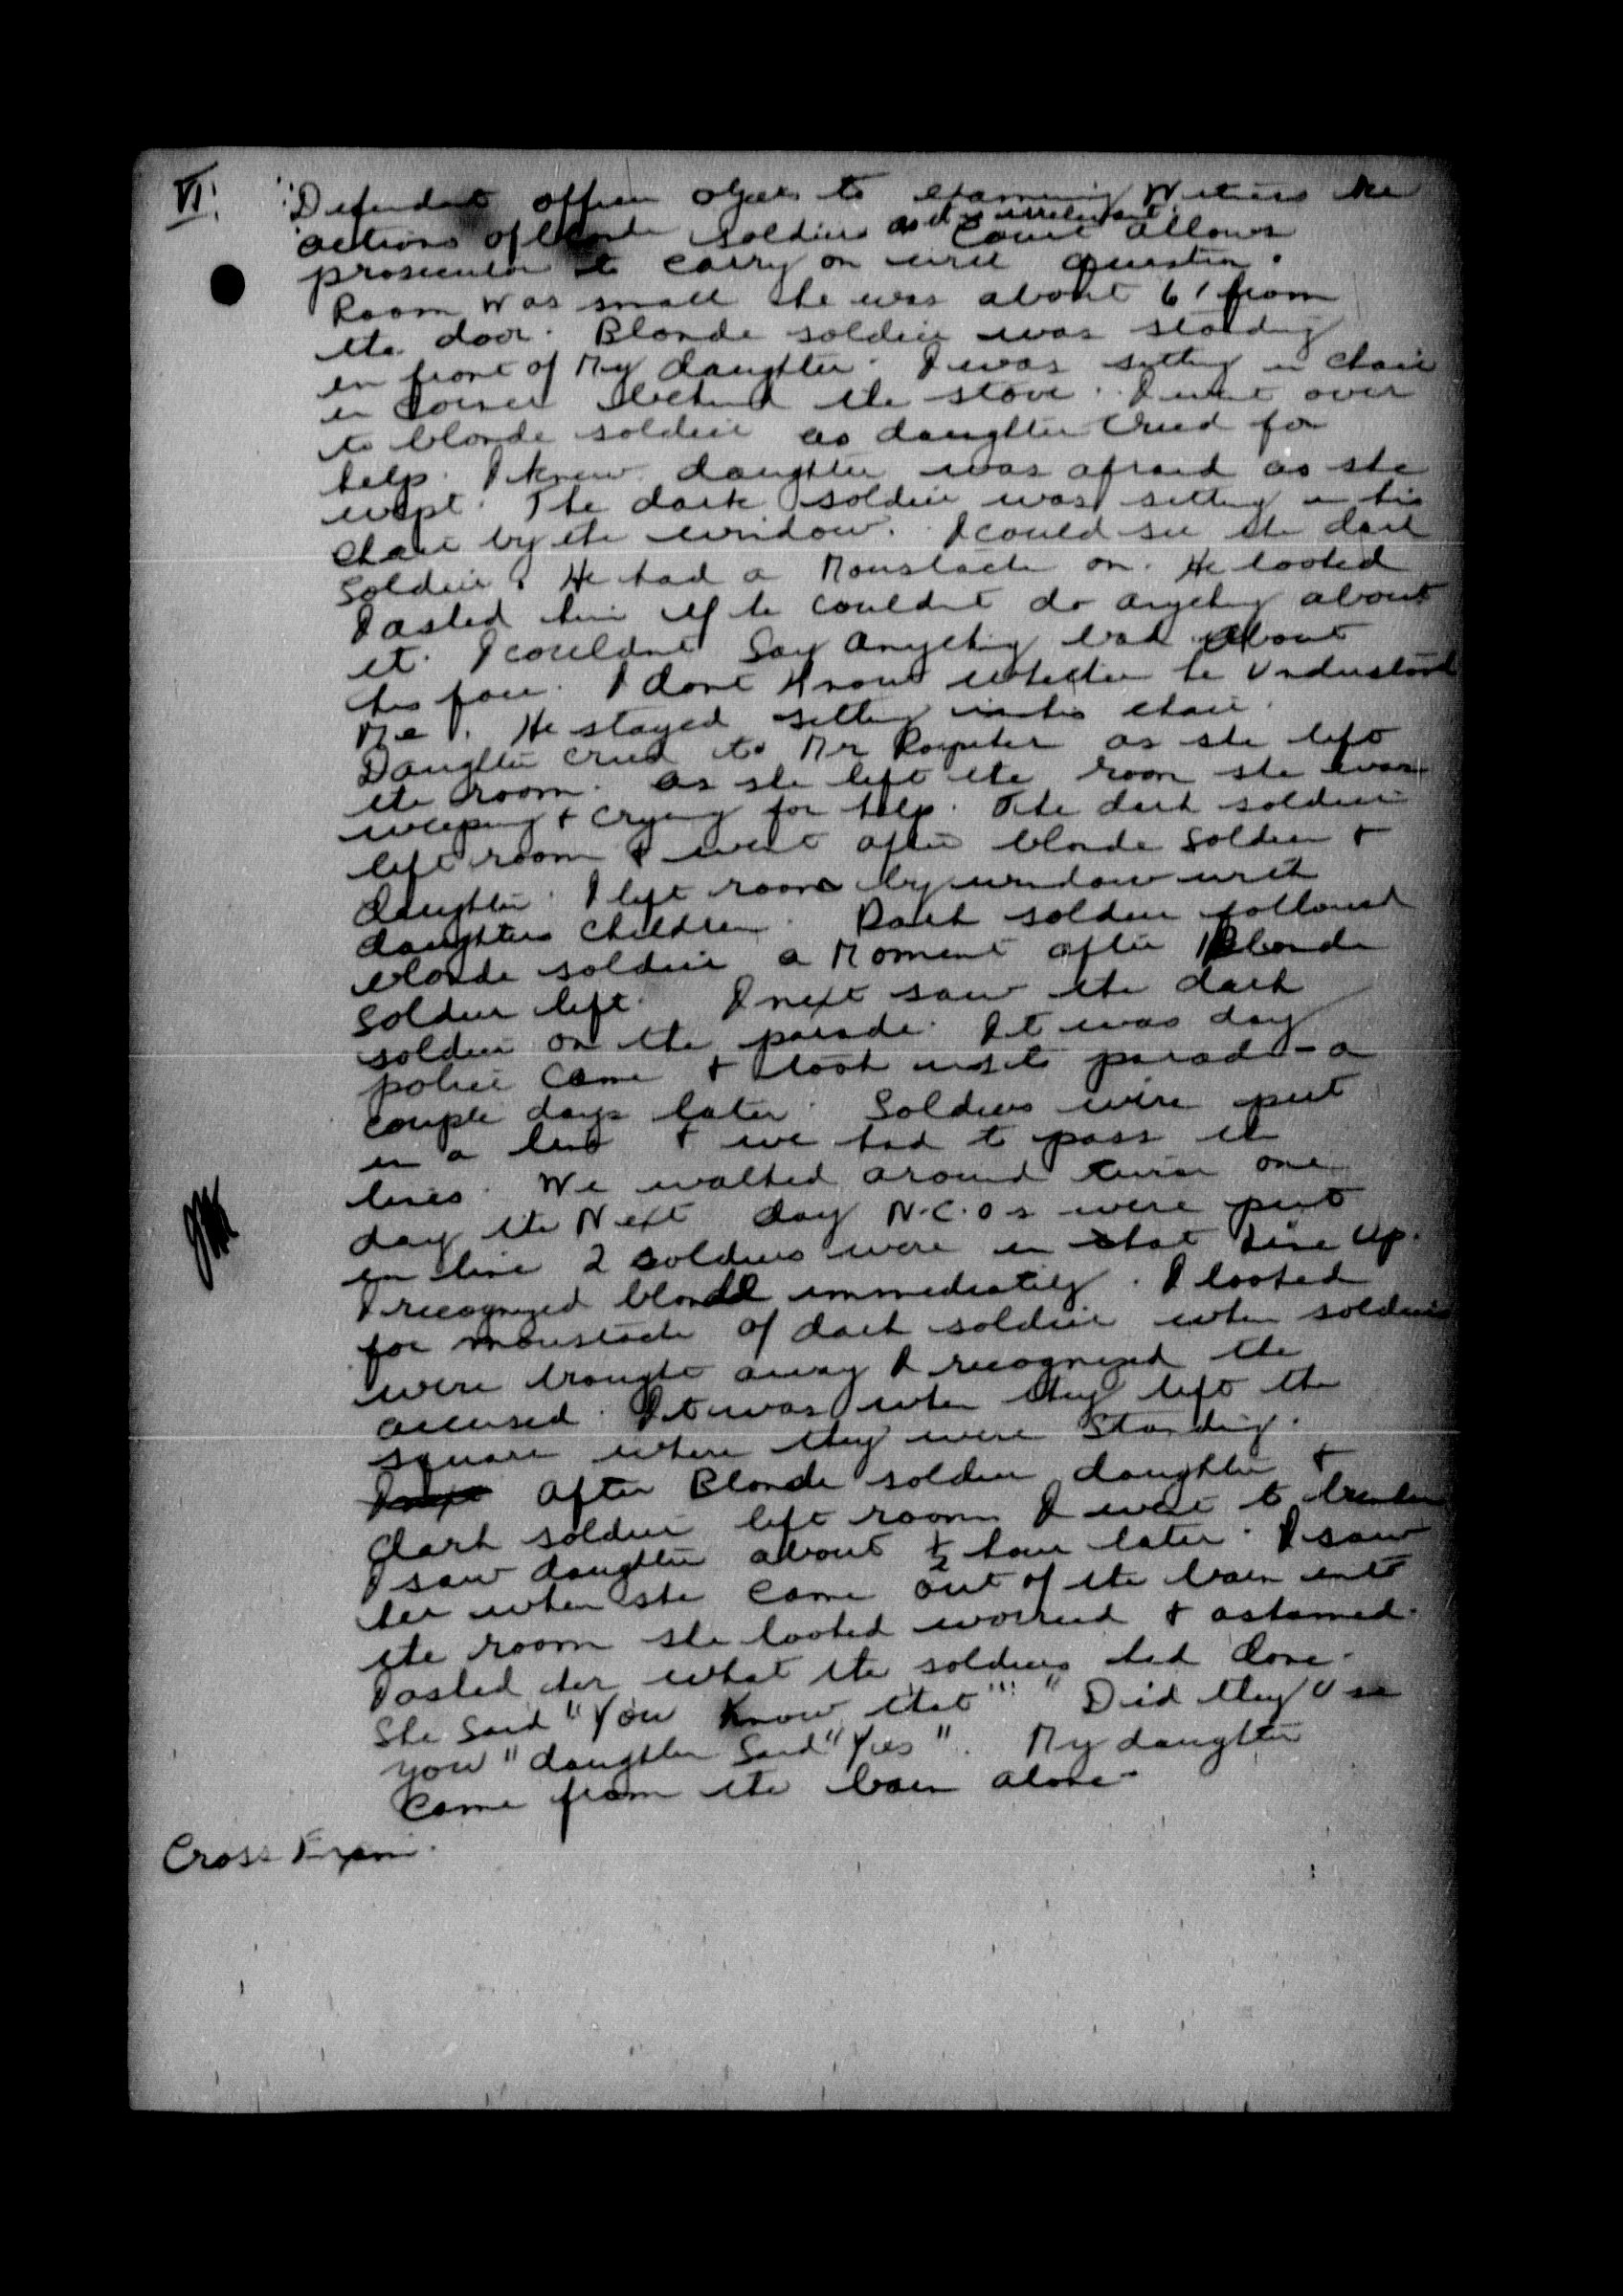 VI.
Defendant officer objects to examining Witness re
actions of blonde soldier as it is irrelevant. Court allows
prosecutor to carry on with question.
Room was small she was about 6' from
the door. Blonde soldier was standing
in front of My daughter. I was sitting in chair
in corner behind the stove. I went over
to blonde soldier as daughter cried for
help. I knew daughter was afraid as she
wept. The dark soldier was sitting in his
chair by the window. I could see the dark
soldier. He had a Moustache on. He looked
I asked him if he couldnt do anything about
it. I couldnt say anything bad about
his face. I dont know whether he understood
Me. He stayed sitting in his chair.
Daughter cried to Mr as she left
the room. As she left the room she was
weeping + crying for help. The dark soldier
left room & went after blonde soldier +
daughter. I left room by window with
daughters children. Dark soldier followed
blonde soldier a Moment after Blonde
soldier left. I next saw the dark
soldier on the parade. It was day
police came + took us to parade - a
couple days later. Soldiers were put
in a line + we had to pass the
lines. We walked around twice one
day the Next day N.C.Os were put
in line 2 soldiers were in that line up.
I recognized blonde immediately. I looked
for moustache of dark soldier when soldiers
were brought away I recognized the
accused. It was when they left the
square where they were standing.
After Blonde soldier daughter +
dark soldier left room I went to
I saw daughter about ½ hour later. I saw
her when she came out of the barn into
the room she looked worried + ashamed.
I asked her what the soldiers had done.
She said "You know that" "Did they use
you" daughter said "Yes". My daughter
came from the barn alone.
Cross Exam.